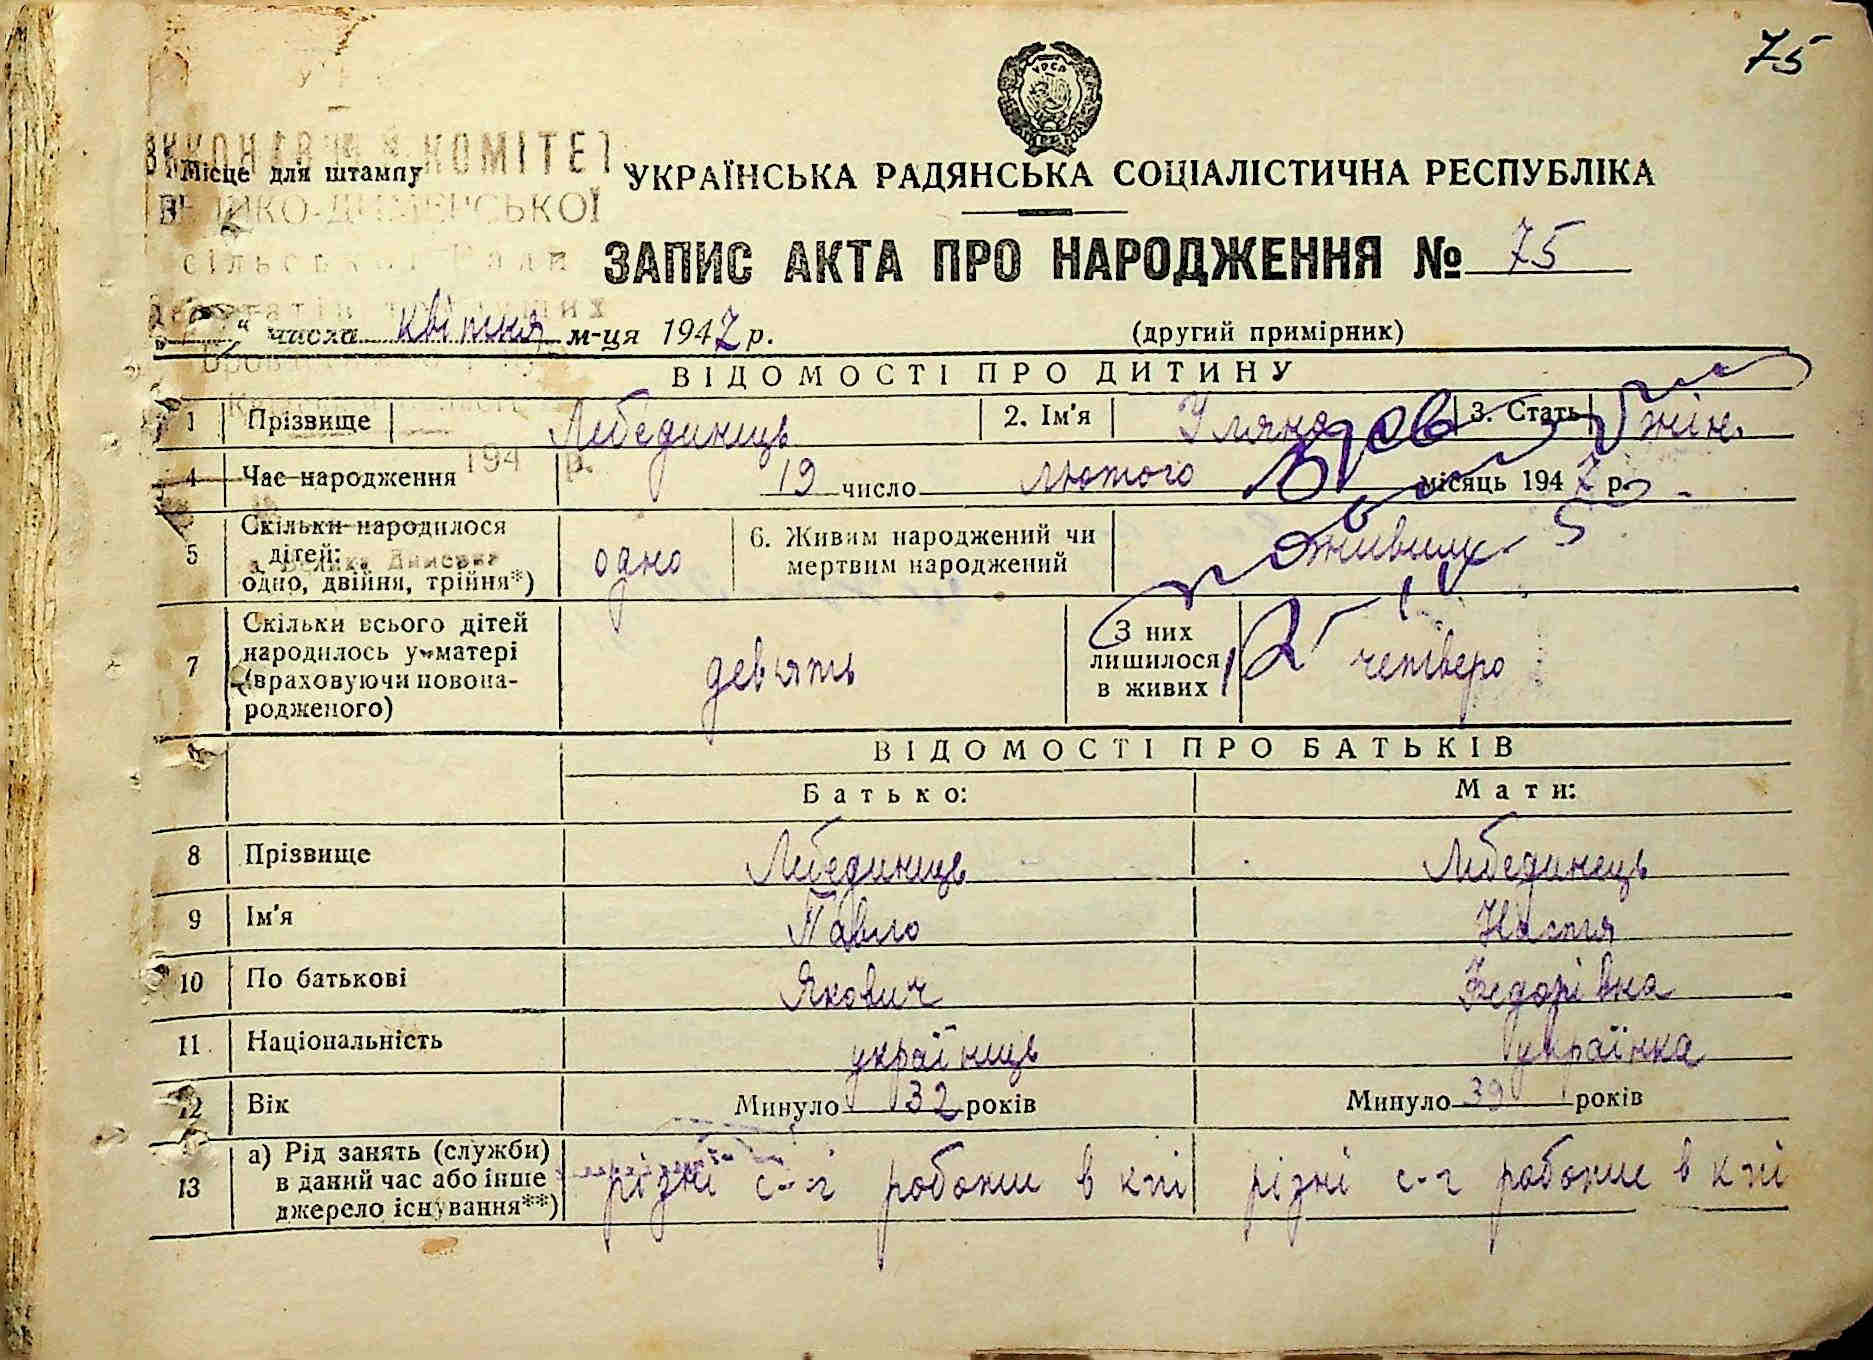 75
УРСР
ВИКОНАВЧИЙ КОМІТЕТ
Місце для штампу
ВЕЛИКО-ДИМЕРСЬКОЇ
сільської Ради
депутатів трудящих
194 р.
УКРАЇНСЬКА РАДЯНСЬКА СОЦІАЛІСТИЧНА РЕСПУБЛІКА
ЗАПИС АКТА ПРО НАРОДЖЕННЯ № 75
„ “ числа квітня м-ця 1947 р. (другий примірник)
ВІДОМОСТІ ПРО ДИТИНУ
1 Прізвище Лебединець 2. Ім'я Уляна 3. Стать жін.
4 Час народження 19 число лютого місяць 1947 р.
5 Скільки народилося дітей: одно, двійня, трійня*) одно 6. Живим народжений чи мертвим народжений живим
7 Скільки всього дітей народилось у матері (враховуючи новонародженого) девять З них лишилося в живих четверо
ВІДОМОСТІ ПРО БАТЬКІВ
Батько: Мати:
8 Прізвище Лебединець Лебединець
9 Ім'я Павло Настя
10 По батькові Якович Федорівна
11 Національність українець українка
12 Вік Минуло 32 років Минуло 39 років
13 а) Рід занять (служби) в даний час або інше джерело існування**) різні с-г роботи в кпі різні с-г роботи в кпі